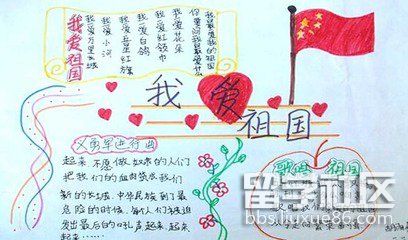 我爱祖国
我最爱我的祖国
你要问我最爱什么
我爱花朵
我爱红领巾
我爱白鸽
我爱五星红旗
我爱小河
我爱万里长城
我爱
祖国
义勇军进行曲
起来 不愿做奴隶的人们
把我们的血肉筑成我们
新的长城 中华民族到了最
危险的时候,每个人被迫
发出最后的吼声起来.起来
起来……
祖国
留学社区
bbs.liuxue86.com